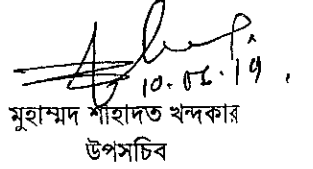 10.06.19
মুহাম্মদ শাহাদত খন্দকার
উপসচিব